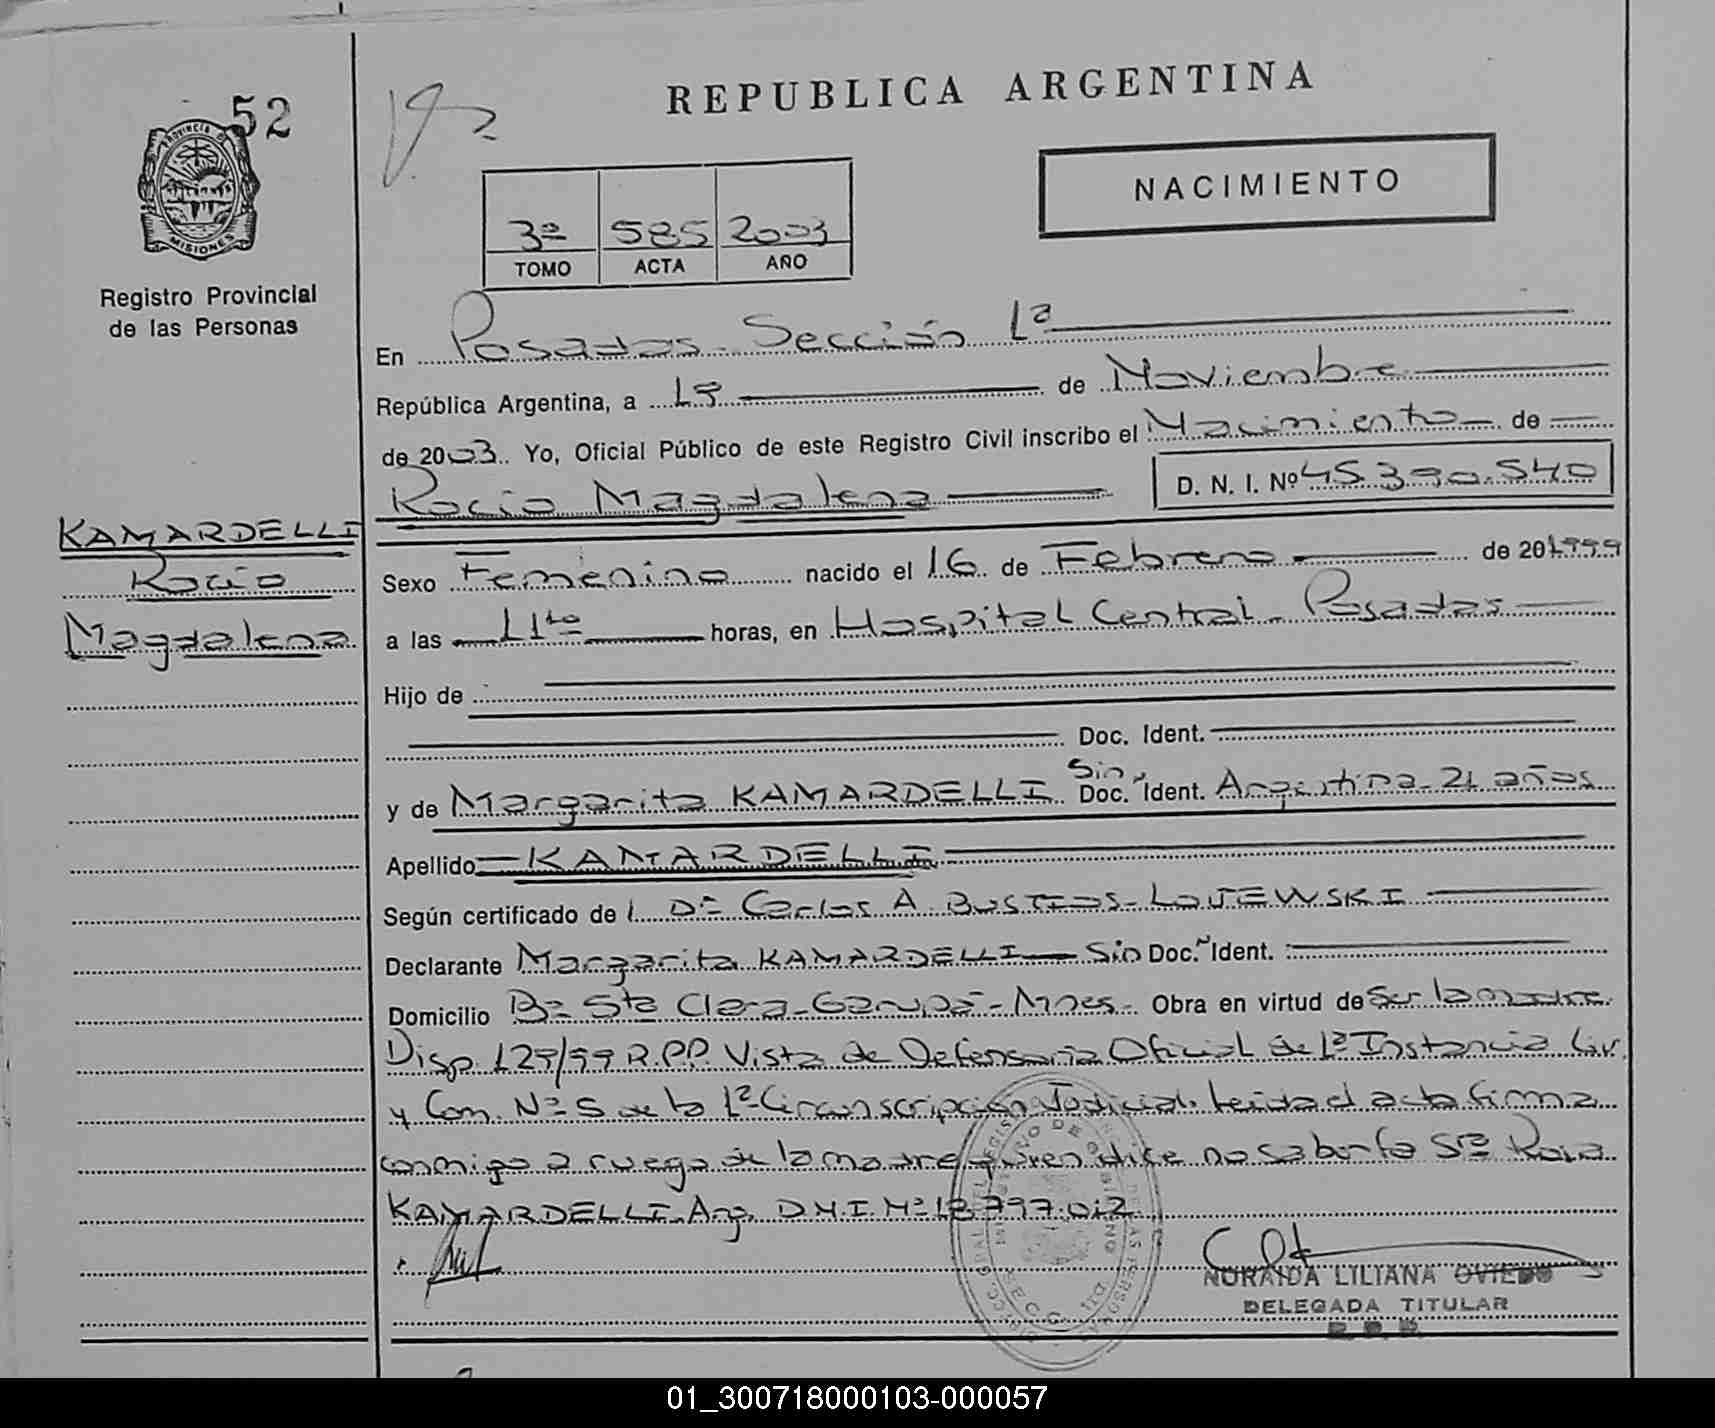 52
PROVINCIA DE
MISIONES
Registro Provincial
de las Personas
REPUBLICA ARGENTINA
NACIMIENTO
3º 585 2003
TOMO ACTA AÑO
En Posadas - Sección 1ª
República Argentina, a 18 de Noviembre
de 2003. Yo, Oficial Público de este Registro Civil inscribo el Nacimiento de
Rocio Magdalena D. N. I. Nº 45.390.540
KAMARDELLI
Rocio
Magdalena
Sexo Femenino nacido el 16 de Febrero de 20 1999
a las 11 horas, en Hospital Central - Posadas
Hijo de
Doc. Ident.
y de Margarita KAMARDELLI Sin Doc. Ident. Argentina - 21 años
Apellido KAMARDELLI
Según certificado de Dr Carlos A. BUSTIOS - LOJEWSKI
Declarante Margarita KAMARDELLI Sin Doc. Ident.
Domicilio Bº Sta Clara - Garupá - Mnes - Obra en virtud de ser la madre
Disp. 129/99 R.P.P. Vista de Defensoria Oficial de 1ª Instancia Civ.
y Com. Nº 5 de la 1ª Circunscripción Judicial. Leida el acta firma
conmigo a ruego de la madre quien dice no saber la Sra Rosa
KAMARDELLI Arg. D.N.I. Nº 18.797.012
NORAIDA LILIANA OVIEDO
DELEGADA TITULAR
R. P. P.
01_300718000103-000057